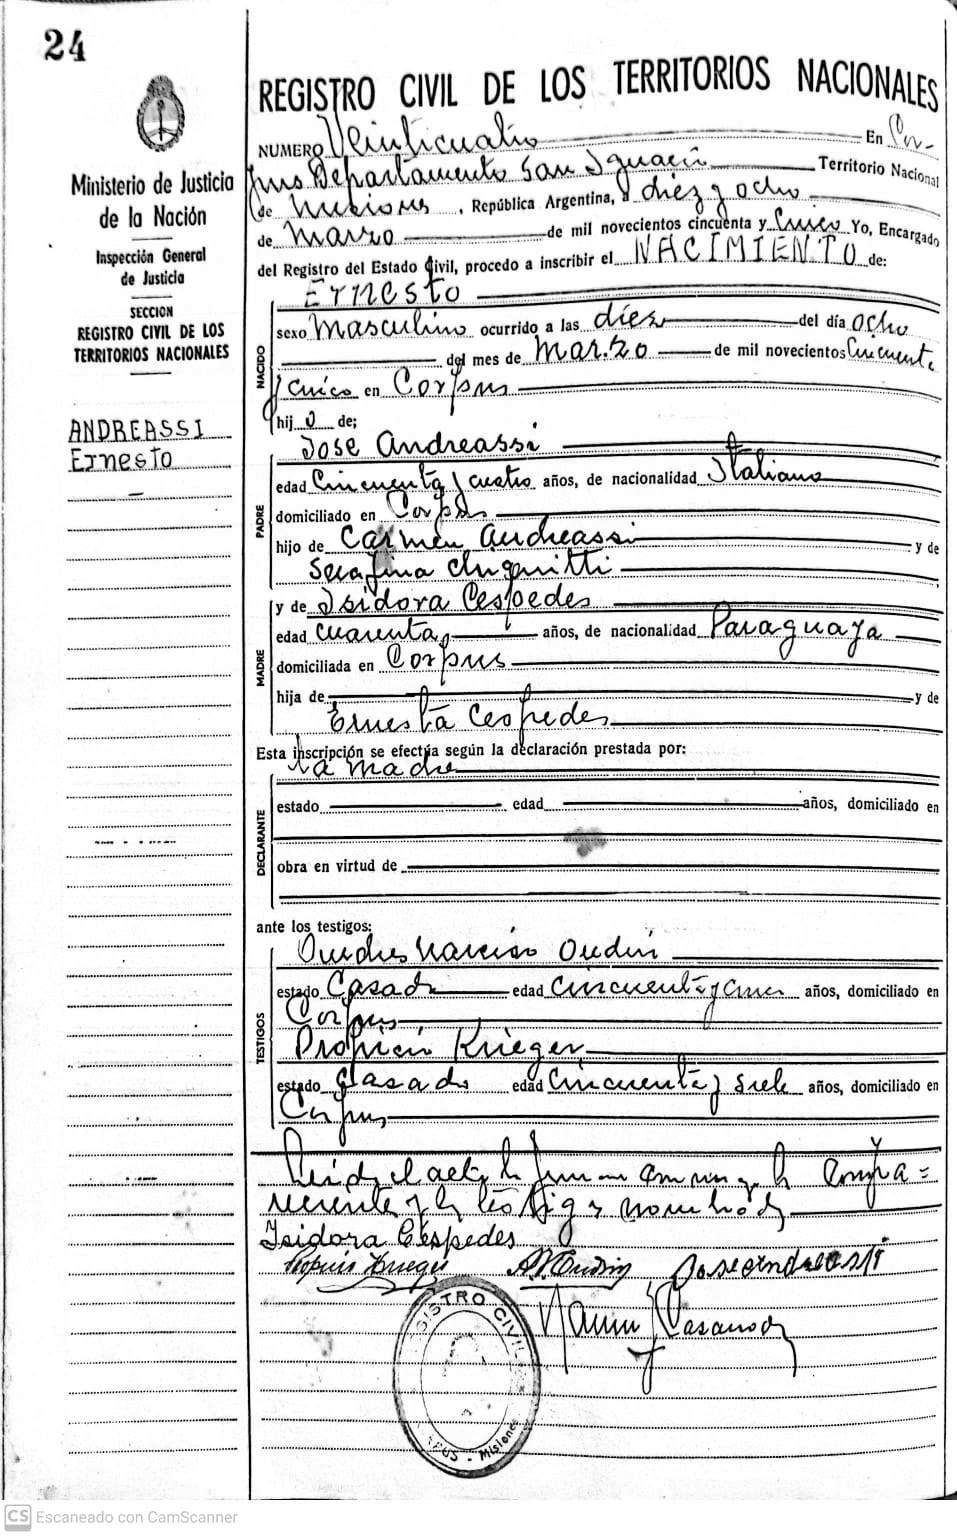 24
Ministerio de Justicia
de la Nación
Inspección General
de Justicia
SECCION
REGISTRO CIVIL DE LOS
TERRITORIOS NACIONALES
ANDREASSI
Ernesto
REGISTRO CIVIL DE LOS TERRITORIOS NACIONALES
NUMERO Veinticuatro En Cor-
pus Departamento San Ignacio Territorio Nacional
de Misiones, República Argentina, a diez y ocho
de Marzo de mil novecientos cincuenta y Cinco Yo, Encargado
del Registro del Estado Civil, procedo a inscribir el NACIMIENTO de:
Ernesto
NACIDO
sexo Masculino ocurrido a las diez del día ocho
del mes de Marzo de mil novecientos Cincuenta
y Cinco en Corpus
hijo de;
Jose Andreassi
PADRE
edad Cincuenta y cuatro años, de nacionalidad Italiano
domiciliado en Corpus
hijo de Carmen Andreassi y de
Serafina
y de Isidora Cespedes
MADRE
edad Cuarenta años, de nacionalidad Paraguaya
domiciliada en Corpus
hija de y de
Ernesta Cespedes
Esta inscripción se efectúa según la declaración prestada por:
la madre
DECLARANTE
estado edad años, domiciliado en
obra en virtud de
ante los testigos:
Narciso
TESTIGOS
estado Casado edad cincuenta y años, domiciliado en
Corpus
Krieger
estado Casado edad Cincuenta y siete años, domiciliado en
Corpus
Leida el acta la
y los testigos
Isidora Céspedes
Jose Andreassi
REGISTRO CIVIL
CORPUS - Misiones
CS Escaneado con CamScanner